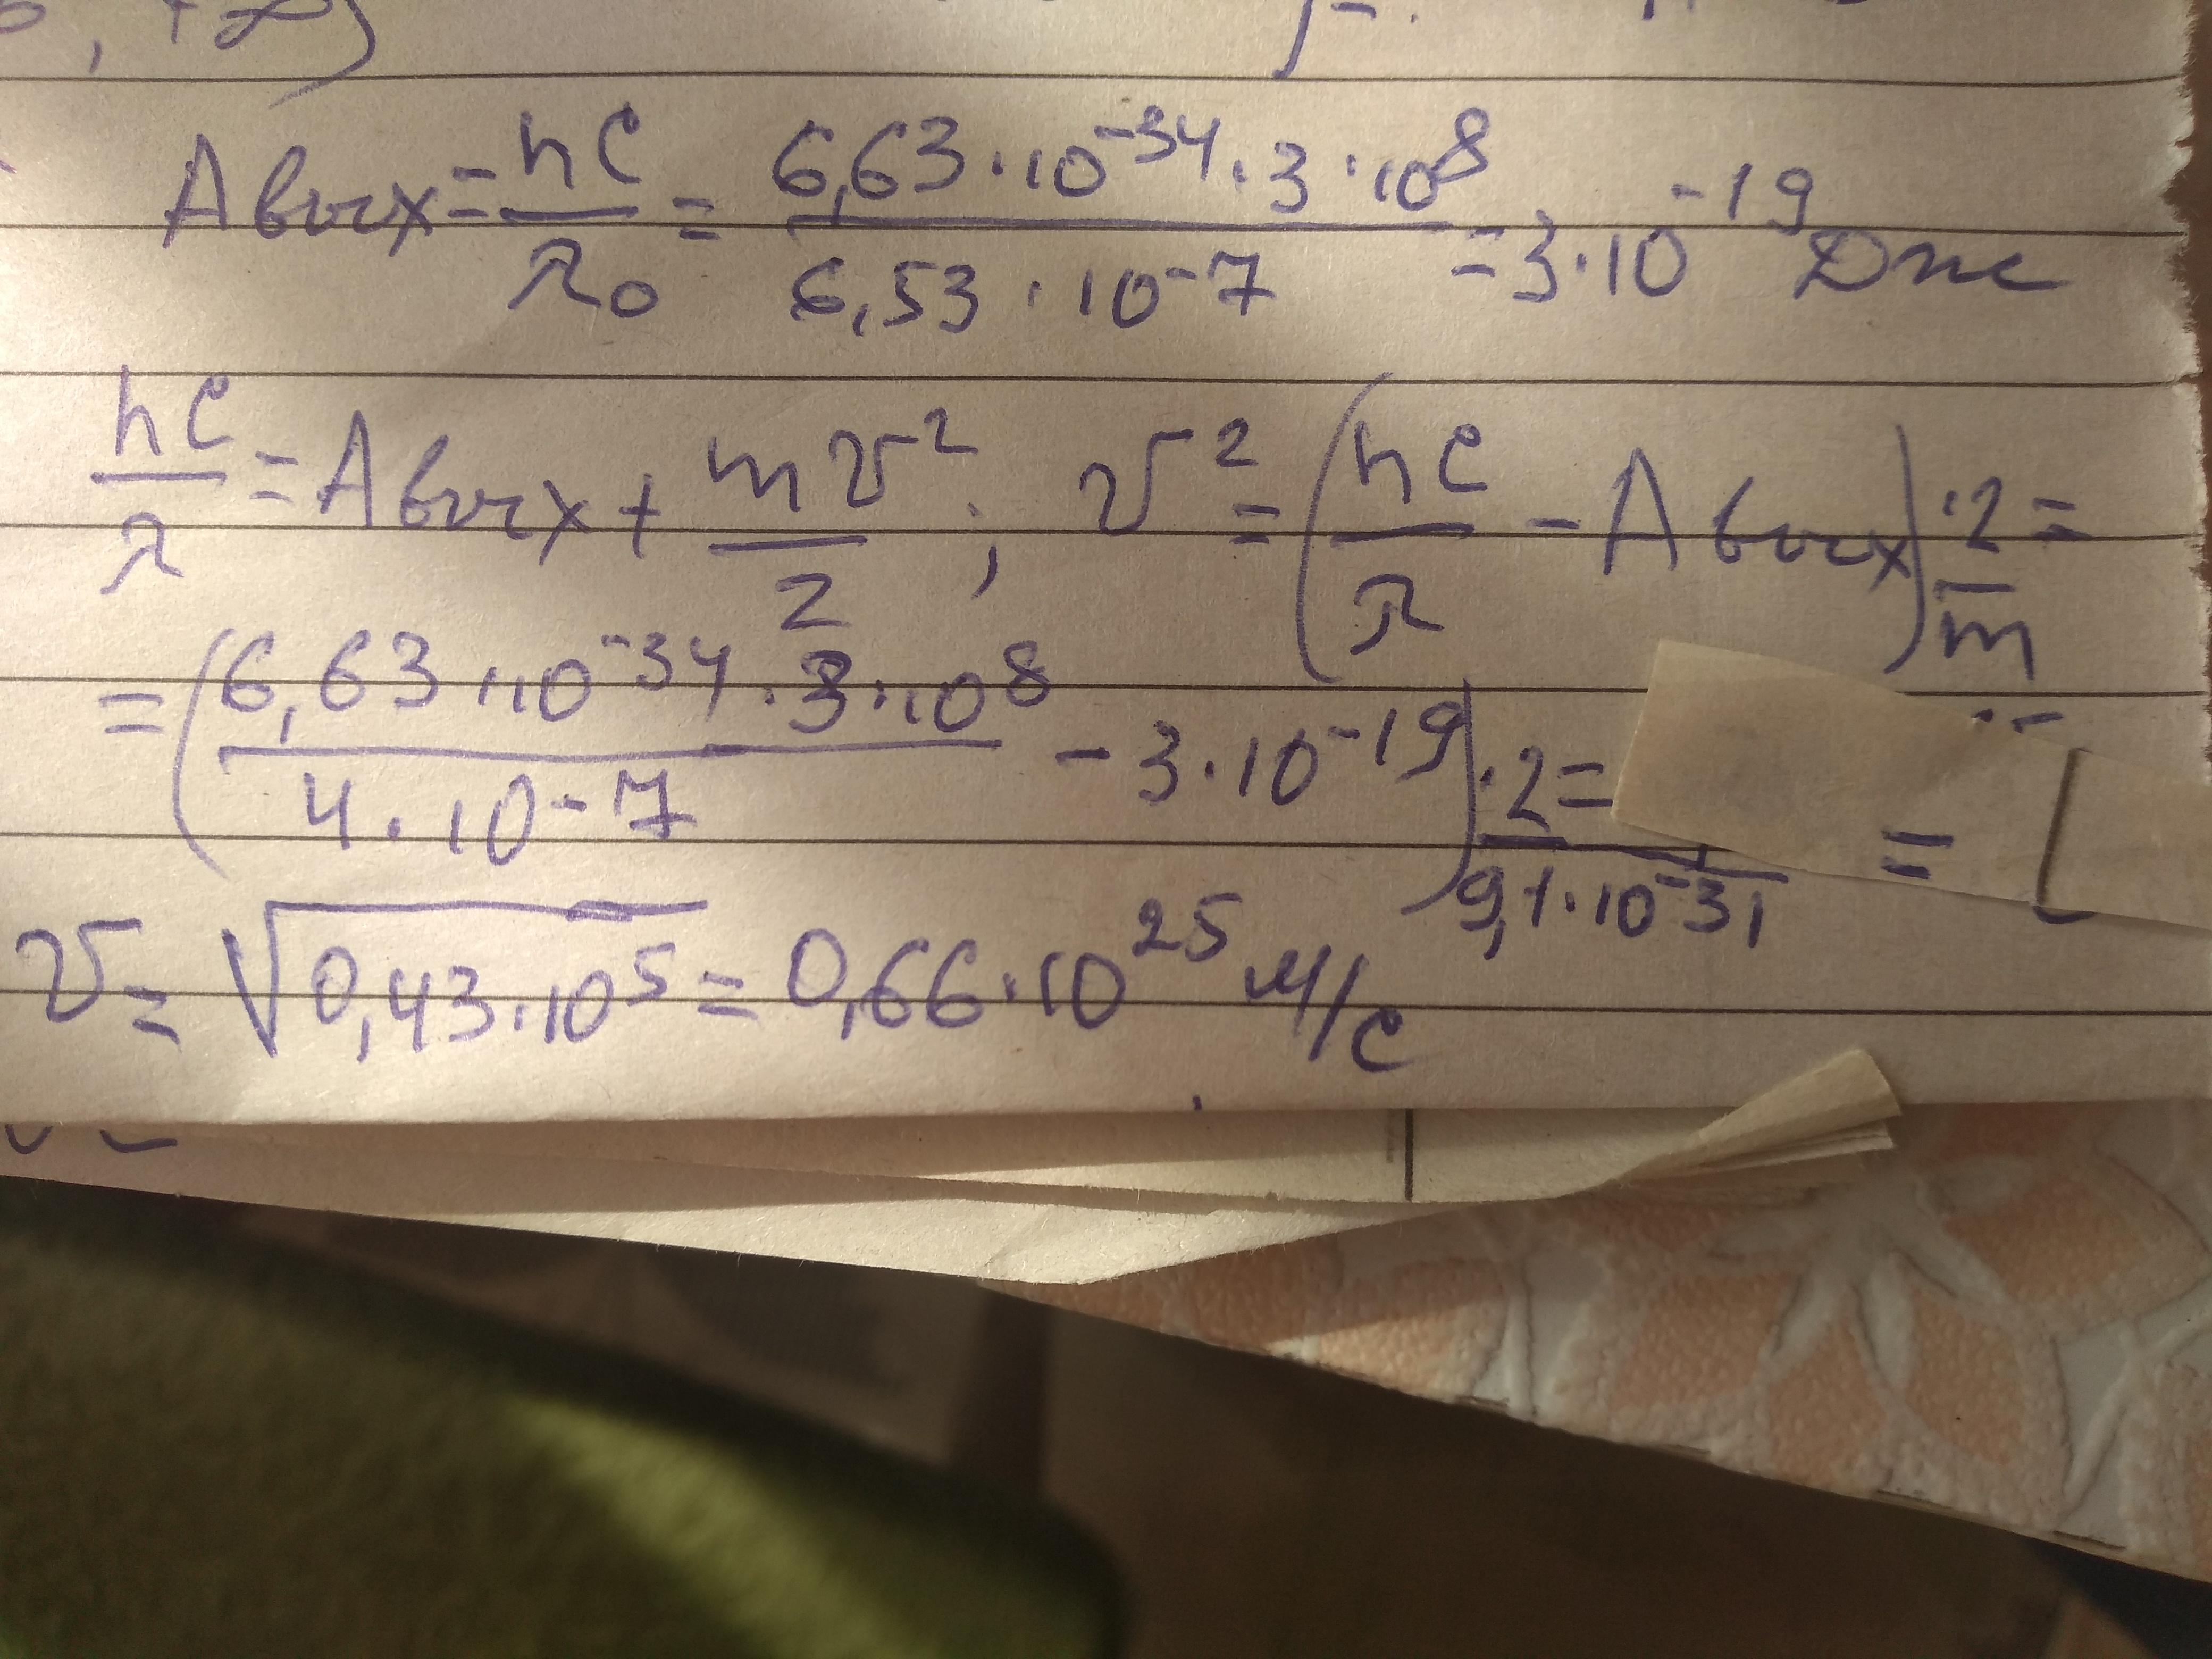 , +∞)
Aвых = hc/λ₀ = 6,63·10⁻³⁴·3·10⁸/6,53·10⁻⁷ = 3·10⁻¹⁹ Дж
hc/λ = Aвых + mv²/2; v² = (hc/λ - Aвых)·2/m =
= (6,63·10⁻³⁴·3·10⁸/4·10⁻⁷ - 3·10⁻¹⁹)·2/9,1·10⁻³¹ = =
v = √0,43·10⁵ = 0,66·10²⁵ м/с